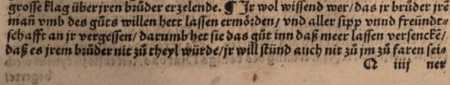 grosse klag über jren brůder erzelende. ¶ Jr wol wissend wer/ das jr brůder jrē
mañ vmb des gůts willen hett lassen ermörden/ vnd aller sipp vnnd freünde⸗
schafft an jr vergessen/ darumb het sie das gůt inn daß meer lassen versenckē/
daß es jrem brůder nit zů theyl würde/ jr will stünd auch nit zů jm zů faren sei⸗
Q iiij ner